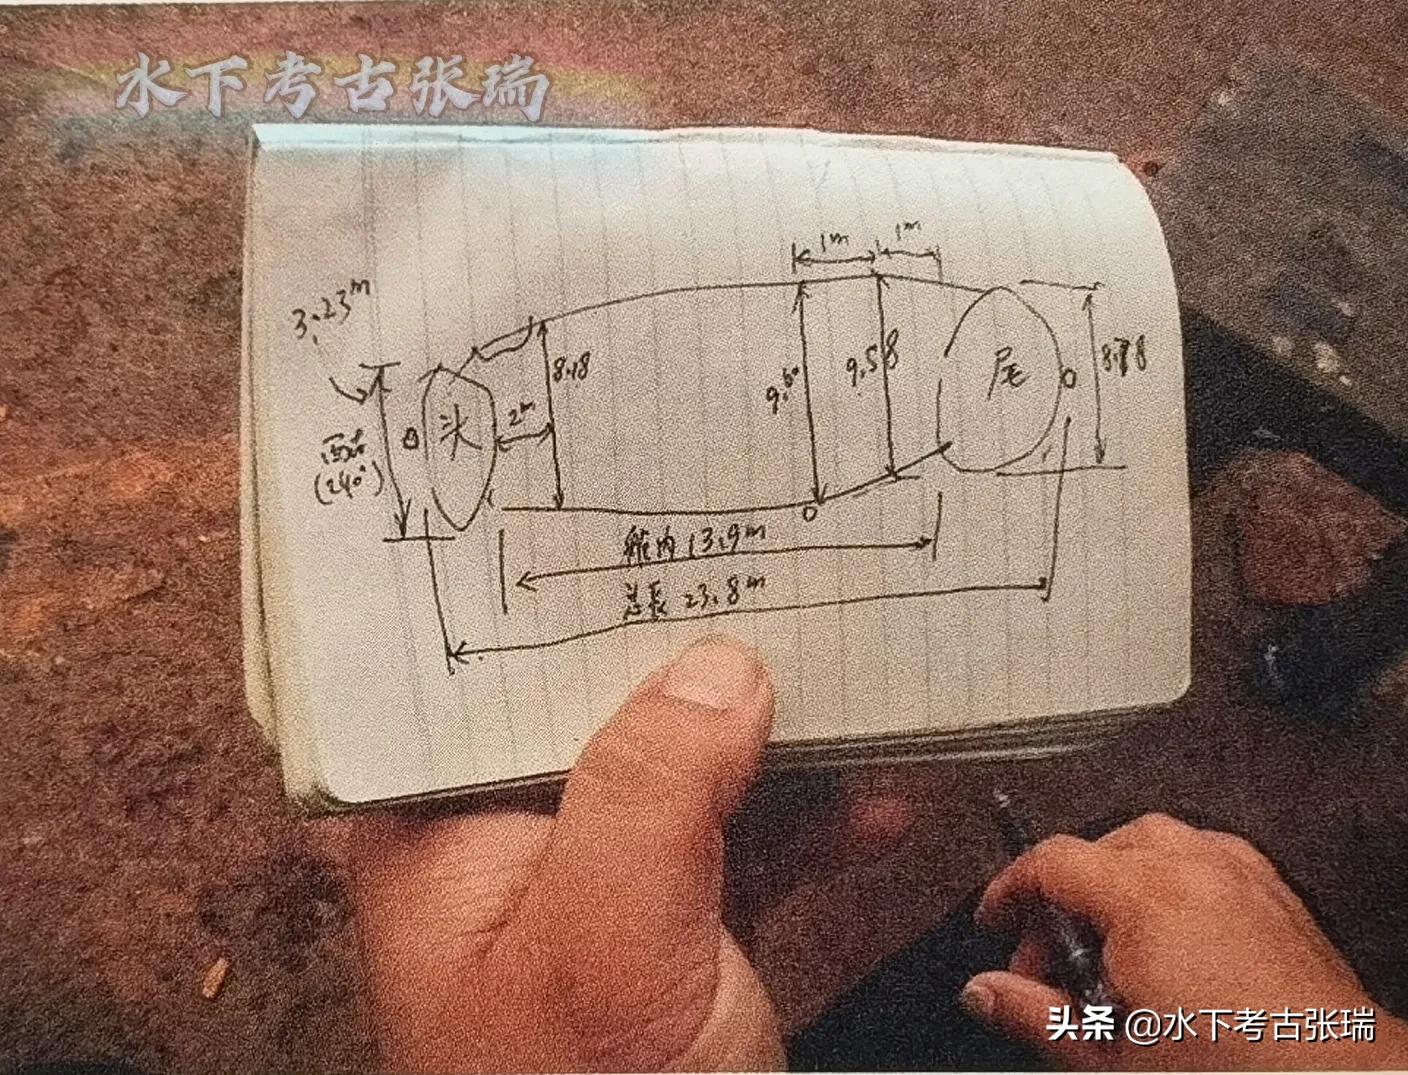 水下考古张瑞
1m 1m
3.23m
8.18
9.60
9.58
尾
头
2m
(240°)
舱内 13.9m
总長 23.8m
头条 @水下考古张瑞